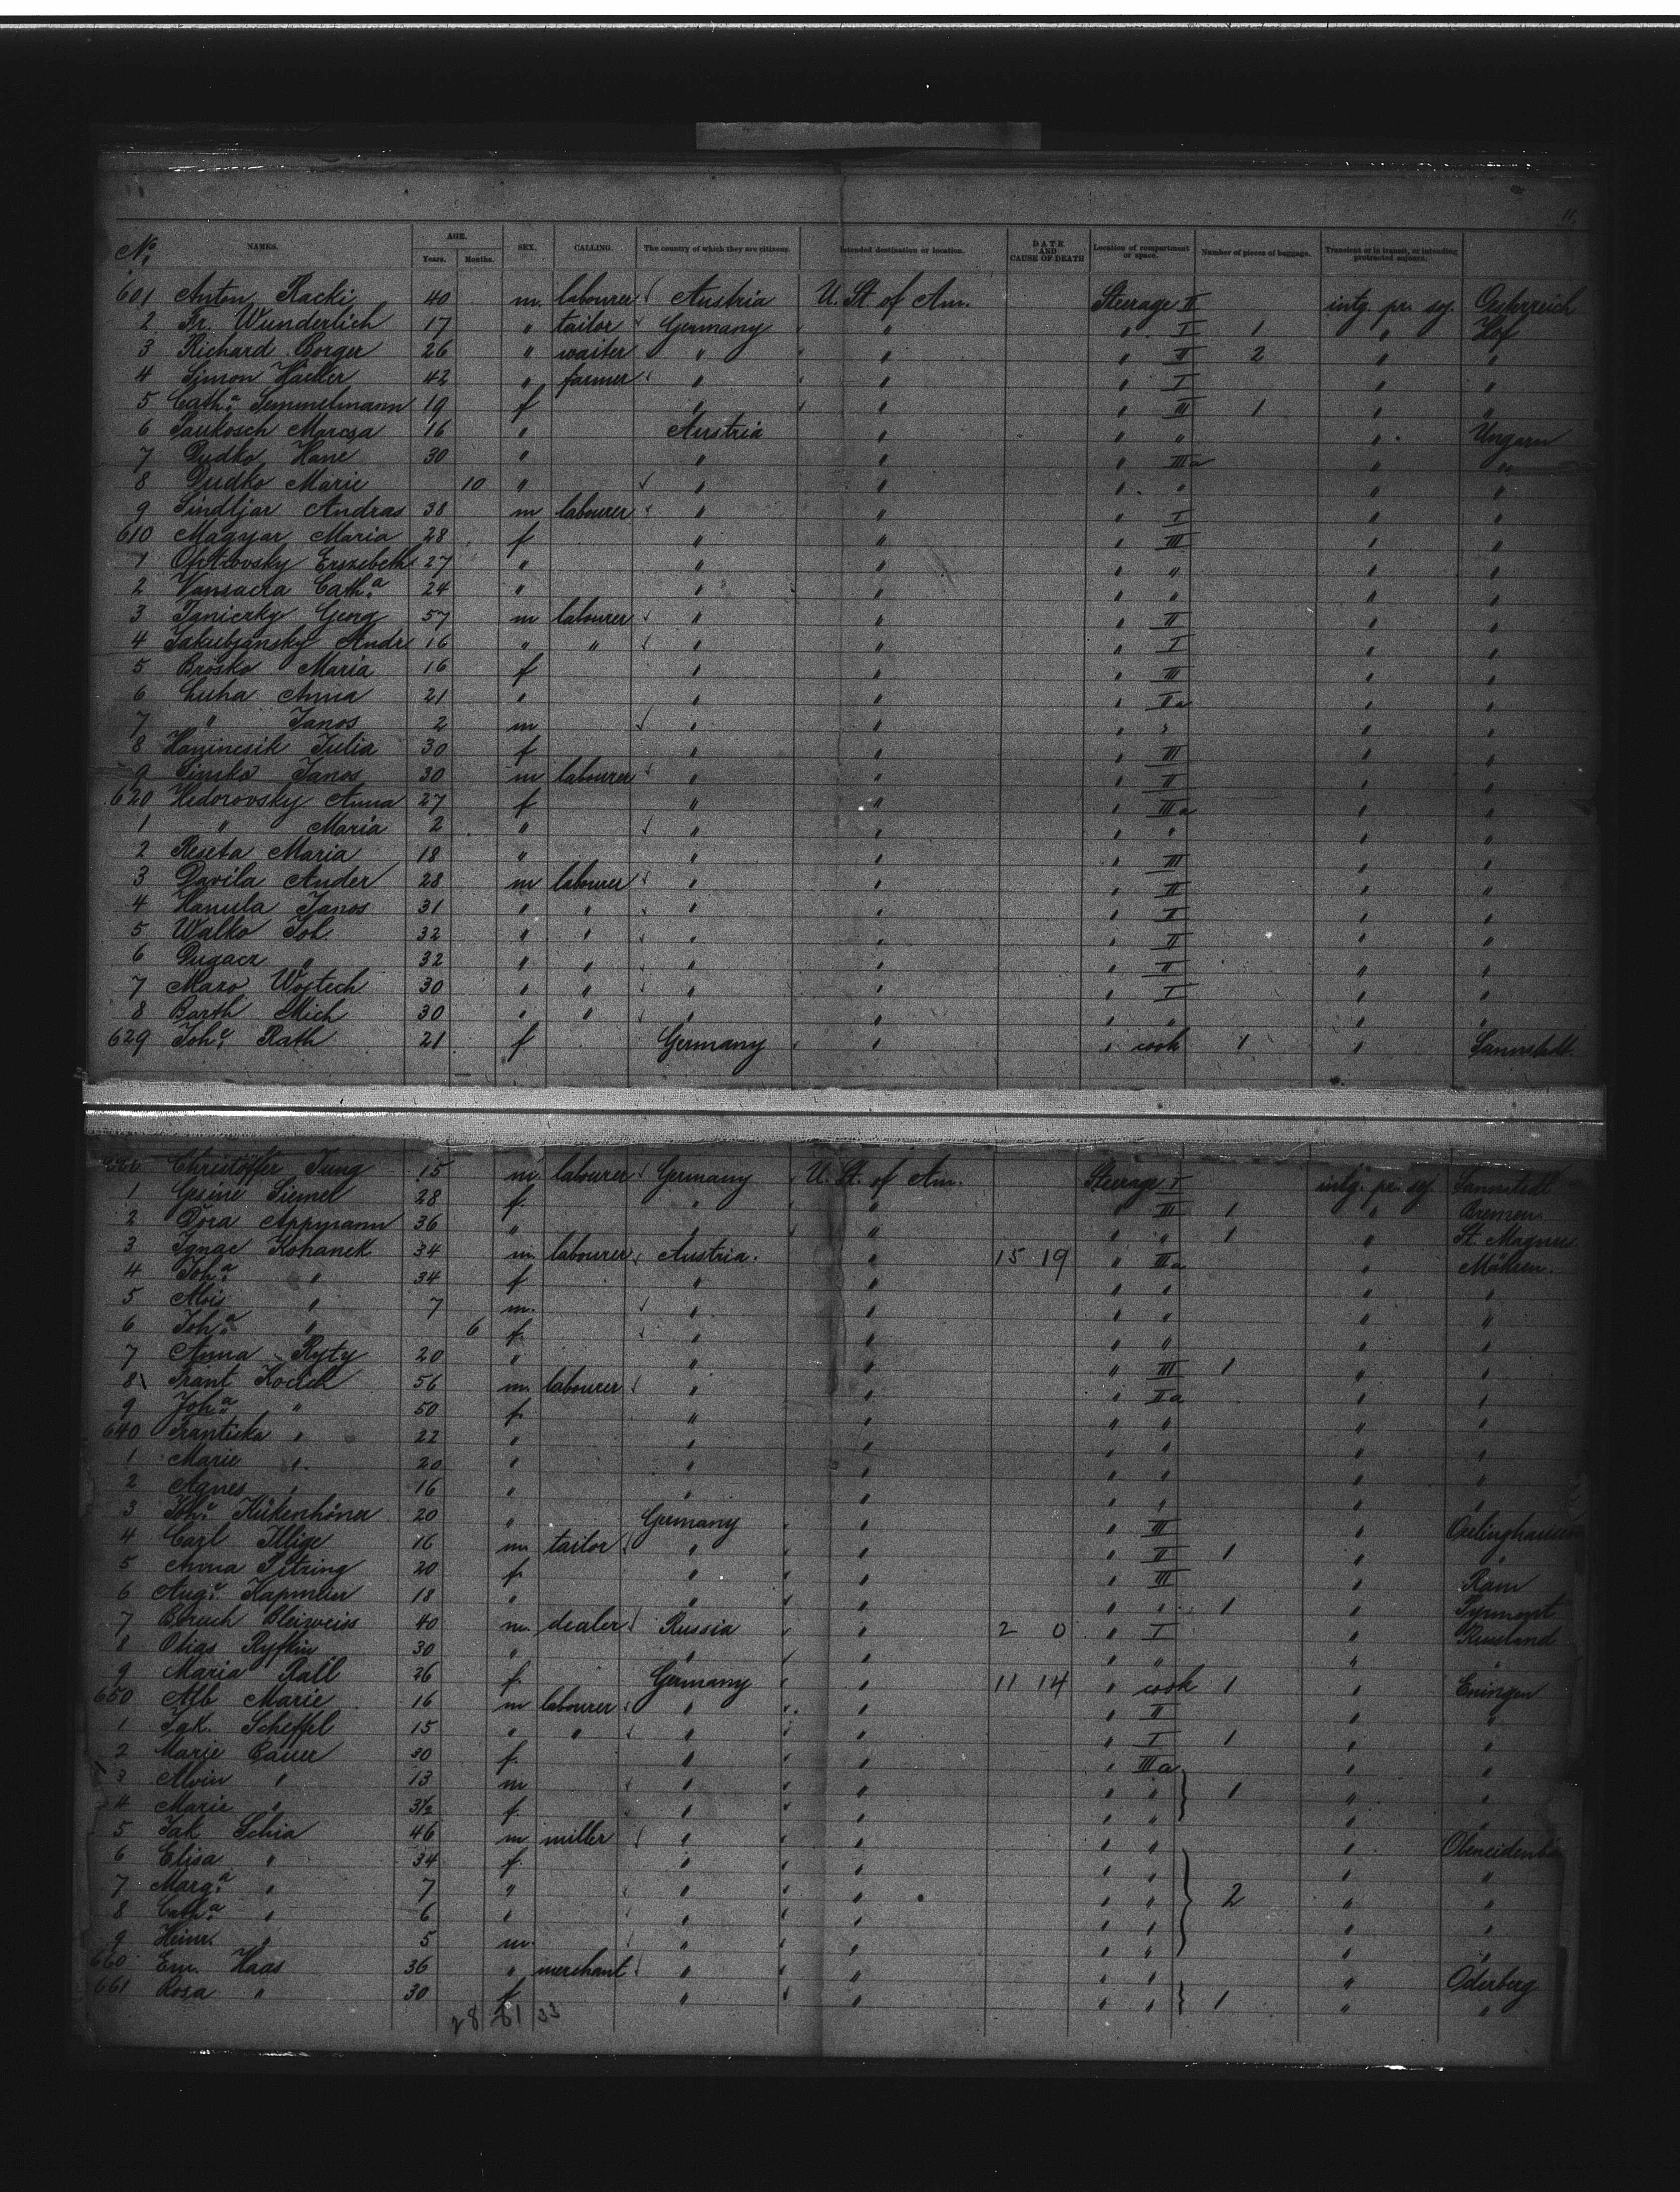 11.
No. NAMES. AGE. Years. Months. SEX. CALLING. The country of which they are citizens. Intended destination or location. DATE AND CAUSE OF DEATH Location of compartment or space. Number of pieces of baggage. Transient or in transit, or intending protracted sojourn.
601 Anton Racki 40 m. labourer Austria U. St of Am. Steerage II intg. pr. soj. Oesterreich
2 Fr. Wunderlich 17 " tailor Germany " " I 1 " Hof
3 Richard Borger 26 " waiter " " " II 2 " "
4 Simon 42 " farmer " " " I " "
5 Cath.a Semmelmann 19 f " " " III 1 " "
6 Marcsa 16 " Austria " " " " Ungarn
7 Dudko Hane 30 " " " " IIIa " "
8 Dudko Marie 10 " " " " " " "
9 Sindljar Andras 38 m labourer " " " I " "
610 Magyar Maria 28 f " " " III " "
1 Erszebeth 27 " " " " " " "
2 Cath.a 24 " " " " " " "
3 Janiczky Georg 57 m labourer " " " II " "
4 Jakubjansky Andr 16 " " " " " I " "
5 Brosko Maria 16 f " " " III " "
6 Luha Anna 21 " " " " IIa " "
7 " Janos 2 m " " " " " "
8 Hanincsik Julia 30 f " " " III " "
9 Simko Janos 30 m labourer " " " II " "
620 Hedorovsky Anna 27 f " " " IIIa " "
1 " Maria 2 " " " " " " "
2 Reseta Maria 18 " " " " III " "
3 Davila Ander 28 m labourer " " " II " "
4 Hanula Janos 31 " " " " " I " "
5 Walko Joh. 32 " " " " " II " "
6 Dugacz " 32 " " " " " II " "
7 Maro Wojtech 30 " " " " " I " "
8 Barth Mich 30 " " " " " " " "
629 Joh.e Rath 21 f Germany " " cook 1 "
Christoffer Jung 15 m. labourer Germany U. St. of Am. Steerage I intg. pr. soj.
1 Gesine Siemel 28 f. " " " III 1 " Bremen
2 Dora Appmann 36 " " " " " 1 " St. Magnus
3 Ignac Kohanek 34 m. labourer Austria. " 15 19 " IIIa " Mähren.
4 Joh.a " 34 f " " " " " "
5 Alois " 7 m. " " " " " "
6 Joh.a " 6 f. " " " " " "
7 Anna Ryty 20 " " " " III 1 " "
8 Frant Kocich 56 m. labourer " " " IIa " "
9 Joh.a " 50 f. " " " " " "
640 Frantiska " 22 " " " " " " "
1 Marie " 20 " " " " " " "
2 Agnes " 16 " " " " " " "
3 Joh.e Kükenhöner 20 " Germany " " III " Oerlinghausen
4 Carl Illige 16 m. tailor " " " II 1 " "
5 Anna Pitzing 20 f. " " " III "
6 Aug.e Kapmeier 18 " " " " " 1 " Pyrmont
7 Boruch Bleiweiss 40 m. dealer Russia " 2 0 " I " Russland
8 Olias Ryfkin 30 " " " " " " "
9 Maria Rall 26 f. Germany " 11 14 " cook 1 " Eningen
650 Alb Marie 16 m labourer " " " II " "
1 Jak. Scheffel 15 " " " " " I 1 " "
2 Marie Bauer 30 f. " " " IIIa " "
3 Alvin " 13 m " " " " 1 " "
4 Marie " 3½ f. " " " " " "
5 Jak Schia 46 m miller " " " "
6 Elisa " 34 f. " " " " " "
7 Marg.a " 7 " " " " " 2 " "
8 Cath.a " 6 " " " " " " "
9 Heinr. " 5 m. " " " " " "
660 Em. Haas 36 " merchant " " " " " Oderberg
661 Rosa " 30 f " " " " 1 " "
28 61 33